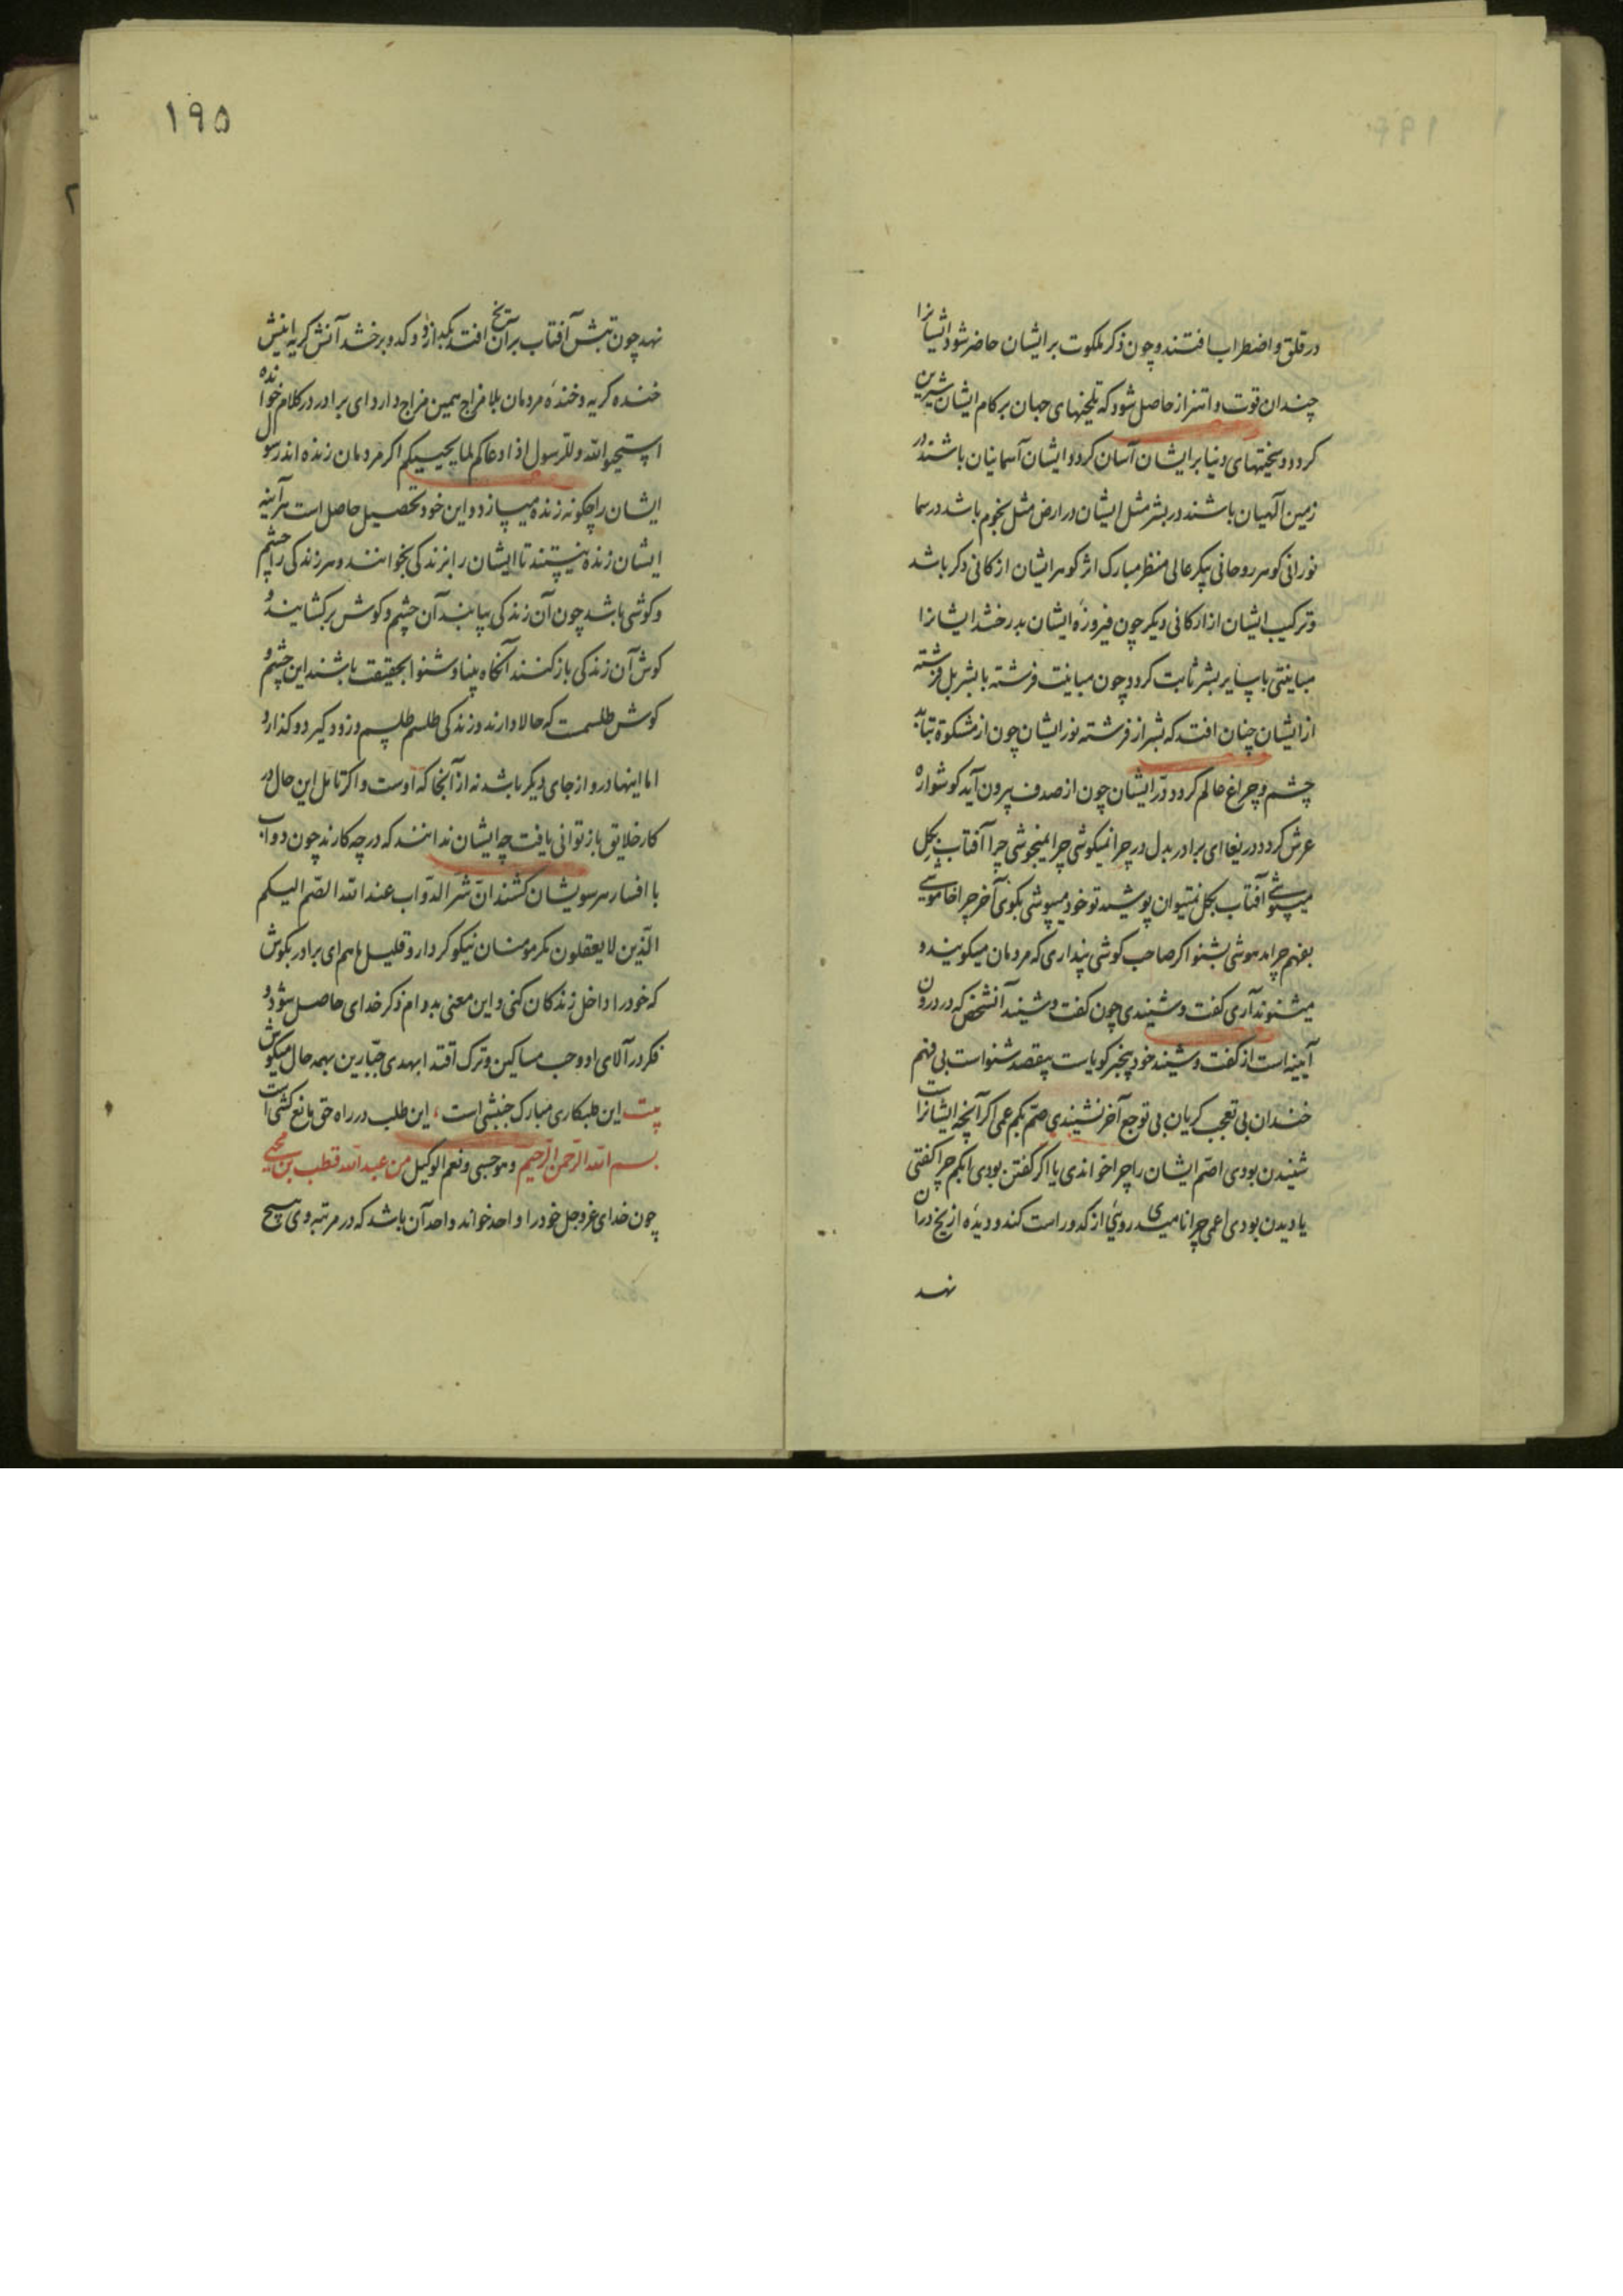 در قلق و اضطراب افتند و چون ذکر ملکوت بر ایشان حاضر شود ایشانرا
چندان قوت و اهتزاز حاصل شود که تلخیهای جهان بر کام ایشان شیرین
کردد و سختیهای دنیا بر ایشان آسان کردد و ایشان آسمانیان باشند در
زمین آلهیان باشند در بشر مثل ایشان در ارض مثل نجوم باشد در سما
نورانی کوهر روحانی پیکر عالی منظر مبارک اثر کوهر ایشان از کانی دکر باشد
و ترکیب ایشان از ارکانی دیکر چون فیروزهٔ ایشان بدرخشد ایشانرا
مباینتی با سایر بشر ثابت کردد چون مباینت فرشته با بشر بل فرشته
از ایشان چنان افتد که بشر از فرشته نور ایشان چون از مشکوة بتابد
چشم و چراغ عالم کردد و درّ ایشان چون از صدف بیرون آید کوشواره
عرش کردد دریغا ای برادر بدل در چرا نمیکوشی چرا نمیجوشی چرا آفتاب بکل
میپوشی آفتاب بکل نمیتوان پوشید تو خود میپوشی بکوی آخر چرا خاموشی
بفهم چرا مدهوشی بشنو اکر صاحب کوشی پنداری که مردمان میکویند و
میشنوند آری کفت و شنیدی چون کفت و شنید آنشخص که در درون
آیینه است از کفت و شنید خود بیخبر کویاست بیقصد شنواست بی فهم
خندان بی تعجب کریان بی توجع آخر نشنیدی صم بکم عمی اکر آنچه ایشانراست
شنیدن بودی اصم ایشان را چرا خواندی یا اکر کفتن بودی ابکم چرا کفتی
یا دیدن بودی اعمی چرا نامیدی روئی از کدو راست کند و دیدهٔ از یخ در آن
نهد
۱۹۵
نهد چون تبش آفتاب بر آن یخ افتد بکدازد و کدو برخشد آنش کریه اینش
خنده کریه و خندهٔ مردمان بلا مزاج همین مزاج دارد ای برادر در کلام خوانده
استجیبوا لله و للرسول اذا دعاکم لما یحییکم اکر مردمان زنده اند رسول
ایشان را چکونه زنده میسازد و این خود تحصیل حاصل است هر آینه
ایشان زنده نیستند تا ایشان را بزندکی بخوانند و هر زندکی را چشم
و کوشی باشد چون آن زندکی بیابند آن چشم و کوش برکشایند و
کوش آن زندکی باز کنند آنکاه بینا و شنوا بحقیقت باشند این چشم و
کوش طلسمست که حالا دارند و زندکی طلسم طلسم وزود کیرد و کذارد
اما اینها درو از جای دیکر باشد نه از آنجا که اوست و اکر تأمل این حال در
کار خلایق باز توانی یافت چه ایشان ندانند که در چه کارند چون دواب
با افسار هر سویشان کشند انّ شرّ الدّواب عند الله الصّم البکم
الّذین لا یعقلون مکر مومنان نیکو کردار و قلیل ما هم ای برادر بکوش
که خود را داخل زندکان کنی و این معنی بدوام ذکر خدای حاصل شود و
فکر در آلای او و حب مساکین و ترک اقتدا بهدی جبّارین بهمه حال میکوش
بیت این طلبکاری مبارک جنبشی است، این طلب در راه حق مانع کشی است
بسم الله الرّحمن الرّحیم و هو حسبی و نعم الوکیل من عبد الله قطب بن محیی
چون خدای عز و جل خود را واحد خواند واحد آن باشد که در مرتبه وی هیچ